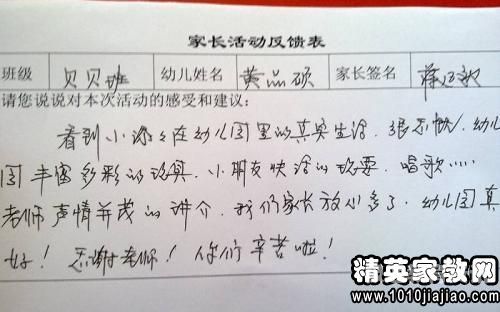 家长活动反馈表
班级 贝贝班 幼儿姓名 黄品硕 家长签名
请您说说对本次活动的感受和建议:
看到小孩在幼儿园里的真实生活,很愉快,幼儿
园丰富多彩的玩具,小朋友快活的玩耍,唱歌……
老师声情并茂的讲介,我们家长放心多了,幼儿园真
好!感谢老师!你们辛苦啦!
精英家教网
www.1010jiajiao.com